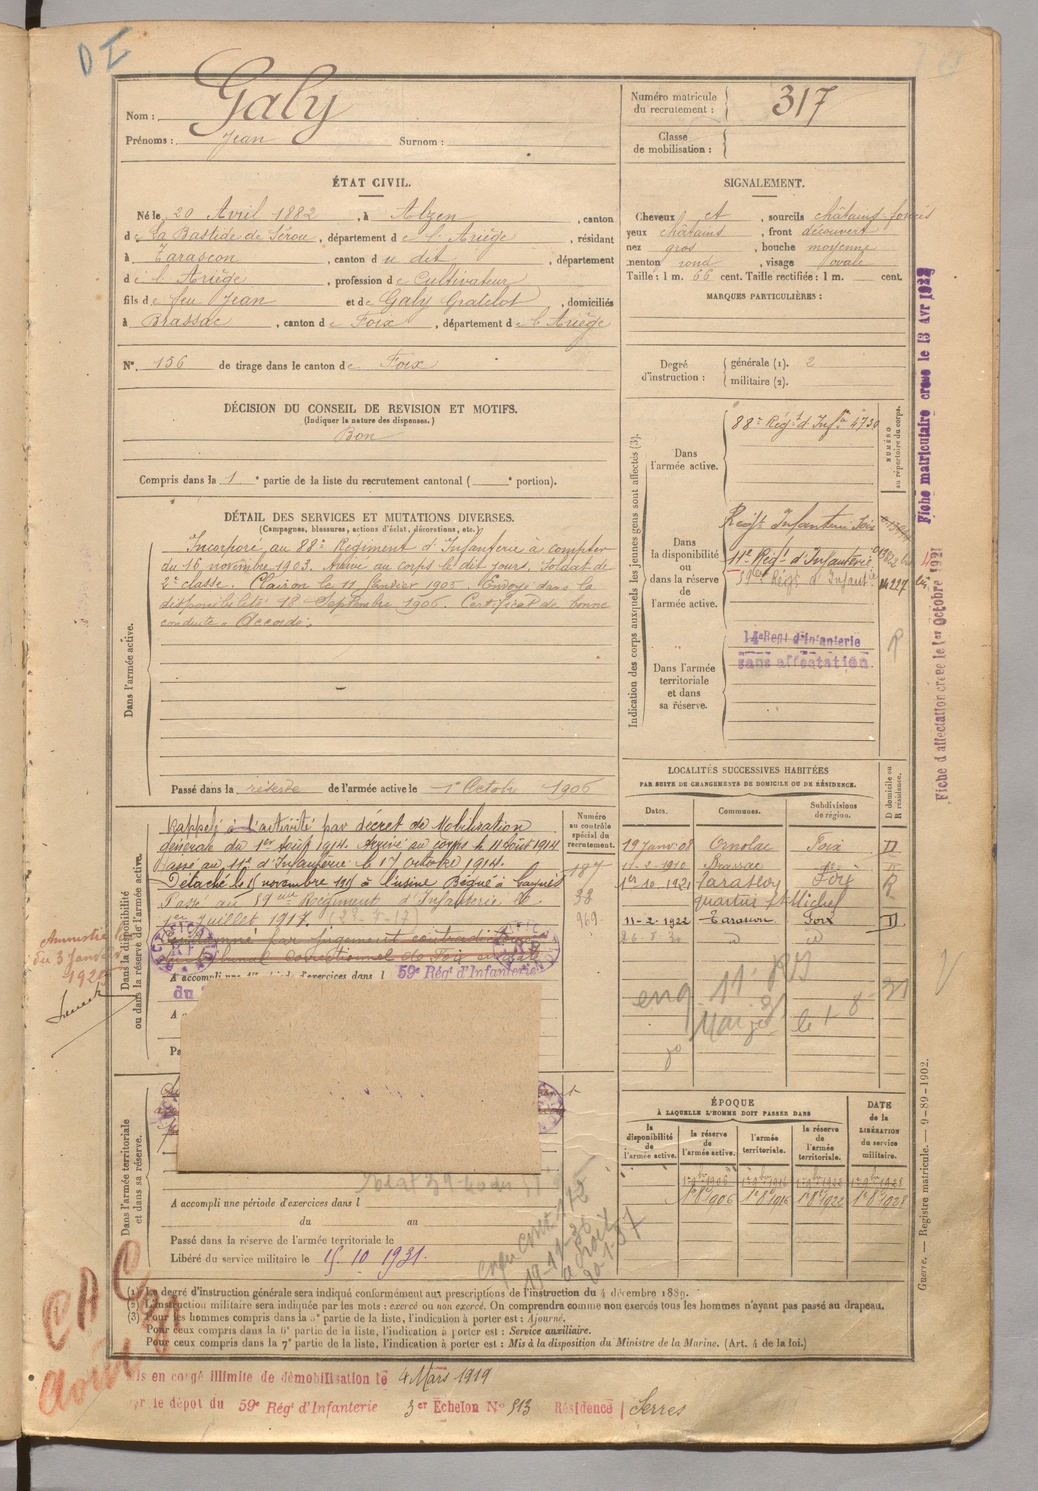 D I
Nom : Galy
Prénoms : Jean Surnom :
Numéro matricule du recrutement : 317
Classe de mobilisation :
ÉTAT CIVIL.
Né le 20 Avril 1882, à Alzen, canton
de La Bastide-de-Sérou, département de l'Ariège, résidant
à Tarascon, canton du dit, département
de l'Ariège, profession de Cultivateur
fils de feu Jean et de Galy Gratelot, domiciliés
à Brassac, canton de Foix, département de l'Ariège
N° 156 de tirage dans le canton de Foix
DÉCISION DU CONSEIL DE REVISION ET MOTIFS.
(Indiquer la nature des dispenses.)
Bon
Compris dans la 1e partie de la liste du recrutement cantonal ( e portion).
SIGNALEMENT.
Cheveux et, sourcils châtains foncés
yeux châtains, front découvert
nez gros, bouche moyenne
menton rond, visage ovale
Taille : 1 m. 66 cent. Taille rectifiée : 1 m. cent.
MARQUES PARTICULIÈRES :
Degré d'instruction : générale (1). 2
militaire (2).
DÉTAIL DES SERVICES ET MUTATIONS DIVERSES.
(Campagnes, blessures, actions d'éclat, décorations, etc.)
Dans l'armée active.
Incorporé au 88e Régiment d'Infanterie à compter
du 16 novembre 1903. Arrivé au corps le dit jour, Soldat de
2e classe. Clairon le 11 février 1905. Envoyé dans la
disponibilité 18 Septembre 1906. Certificat de bonne
conduite Accordé.
Passé dans la réserve de l'armée active le 1er Octobre 1906
Indication des corps auxquels les jeunes gens sont affectés (3).
NUMÉRO au répertoire du corps.
Dans l'armée active.
88e Régt d'Infrie 4730
Dans la disponibilité ou dans la réserve de l'armée active.
Régt Infanterie Foix
11e Régt d'Infanterie
59e Régt d'Infantie
Dans l'armée territoriale et dans sa réserve.
14e Regt d'Infanterie
sans affectation
R
Fiche matriculaire créée le 13 Avr
Fiche d'affectation créée le 1er Octobre 1921
Dans la disponibilité ou dans la réserve de l'armée active.
Numéro au contrôle spécial du recrutement.
Rappelé à l'activité par décret de Mobilisation
générale du 1er Août 1914. Arrivé au corps le 11 Août 1914
Passé au 11e d'Infanterie le 17 octobre 1914.
Détaché le 15 novembre 1915 à l'usine Bégué à
Passé au 59ème Régiment d'Infanterie le
1er Juillet 1917. (28-7-17)
Condamné par jugement contradictoire
Tribunal Correctionnel de Foix
187
38
969
Amnistie
du 3 Janvier
1925
A accompli une période d'exercices dans l 59e Régt d'Infanterie
du
A a
Pa
LOCALITÉS SUCCESSIVES HABITÉES
PAR SUITE DE CHANGEMENTS DE DOMICILE OU DE RÉSIDENCE.
Dates. Communes. Subdivisions de région. D domicile ou R résidence.
19 Janv 08 Ornolac Foix D
11-2-1910 Brassac
1er 10-1921 Tarascon Foix R
quartier St Michel
11-2-1922 Tarascon Foix D
Dans l'armée territoriale et dans sa réserve.
A accompli une période d'exercices dans l
du au
Passé dans la réserve de l'armée territoriale le
Libéré du service militaire le 15. 10 1931.
ÉPOQUE
À LAQUELLE L'HOMME DOIT PASSER DANS
la disponibilité de l'armée active. la réserve de l'armée active. l'armée territoriale. la réserve de l'armée territoriale. DATE de la LIBÉRATION du service militaire.
1er 8bre 1906 1er 8bre 1916 1er 8bre 1922 1er 8bre 1928
(1) Le degré d'instruction générale sera indiqué conformément aux prescriptions de l'instruction du 4 décembre 1889.
(2) L'instruction militaire sera indiquée par les mots : exercé ou non exercé. On comprendra comme non exercés tous les hommes n'ayant pas passé au drapeau.
(3) Pour les hommes compris dans la 5e partie de la liste, l'indication à porter est : Ajourné.
Pour ceux compris dans la 6e partie de la liste, l'indication à porter est : Service auxiliaire.
Pour ceux compris dans la 7e partie de la liste, l'indication à porter est : Mis à la disposition du Ministre de la Marine. (Art. 4 de la loi.)
Guerre. — Registre matricule. — 9-89-1902.
CAC
Août 31
is en congé illimité de démobilisation le 4 Mars 1919
r le dépôt du 59e Régt d'Infanterie 3er Echelon N° 513 Résidence Serres